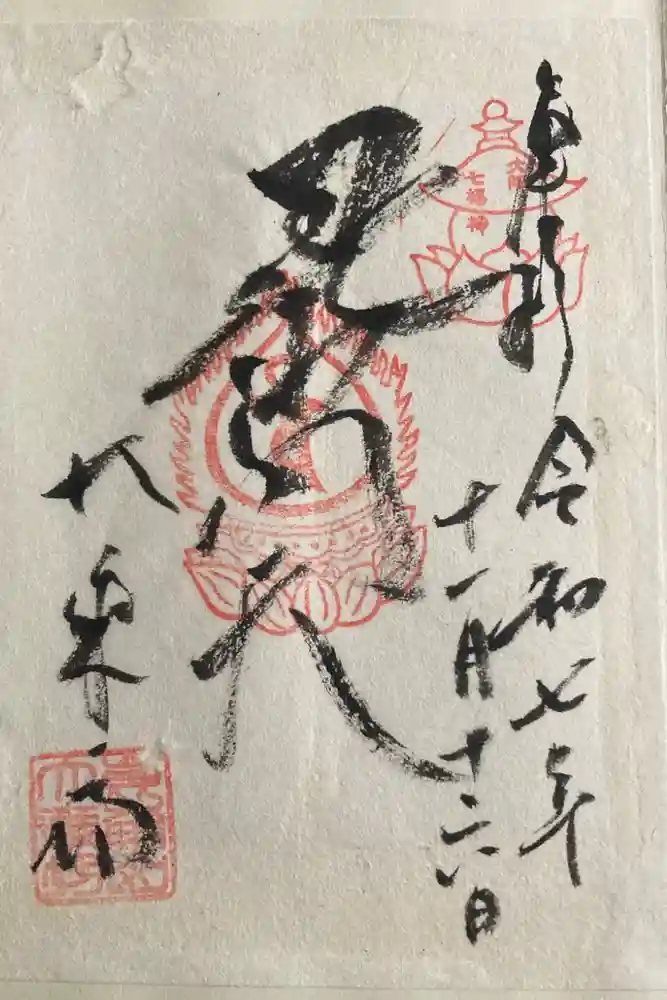 奉拝 令和七年
十一月十六日
大阪
七福神
毘沙門天
大乗坊